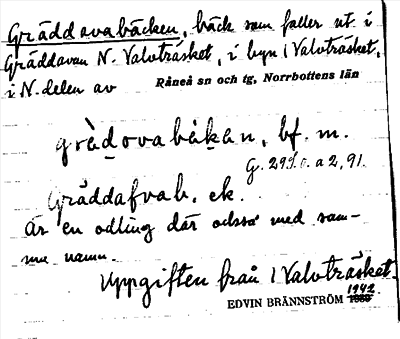 Gräddavabäcken, bäck som faller ut i
Gräddavan N. Valvträsket, i byn 1 Valvträsket,
i N. delen av Råneå sn och tg, Norrbottens län
grädovabäkän, bf. m.
G. 291. a 2, 91.
Gräddafvab. ek.
Är en odling där också med sam-
ma namn.
Uppgiften från 1 Valvträsket.
1942
EDVIN BRÄNNSTRÖM